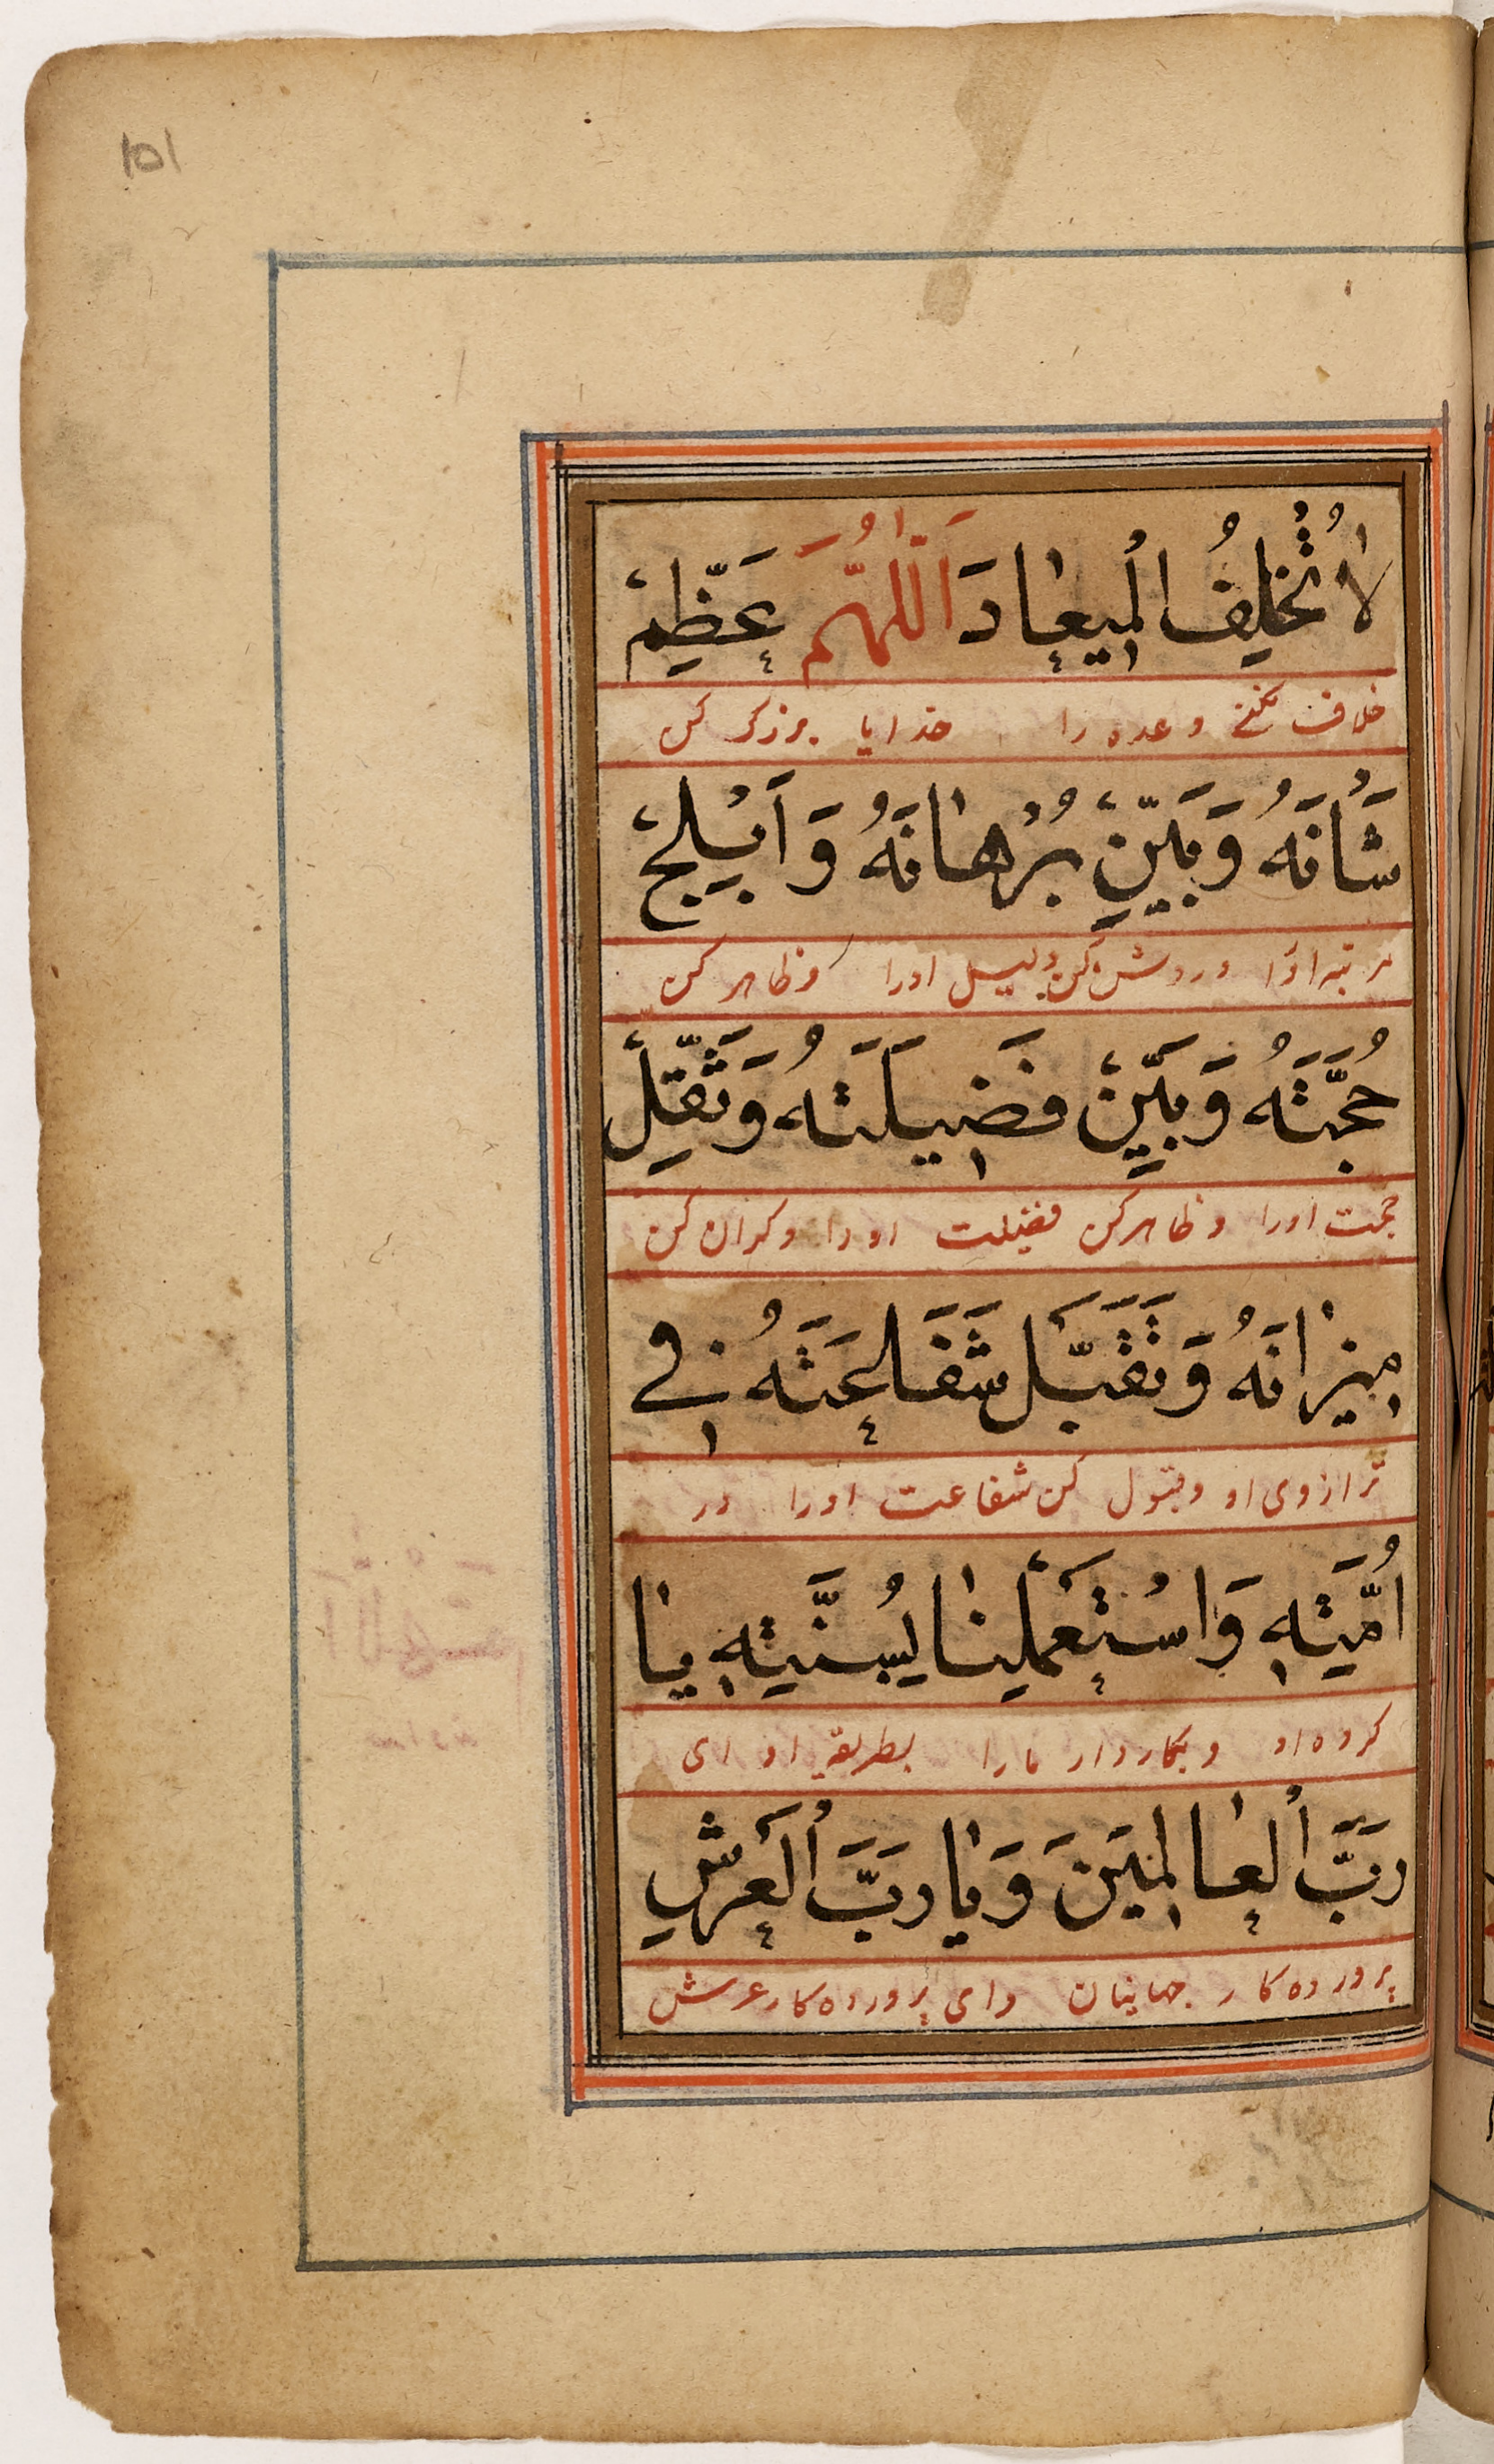 ١٥١
لَا تُخْلِفُ الْمِيعَادَ اَللّٰهُمَّ عَظِّمْ
خلاف نکنی وعده را خدایا بزرک کن
شَأْنَهُ وَبَيِّنْ بُرْهَانَهُ وَاَبْلِجْ
مرتبه او را و روشن کن دلیل او را و ظاهر کن
حُجَّتَهُ وَبَيِّنْ فَضِيلَتَهُ وَثَقِّلْ
حجت او را و ظاهر کن فضیلت او را و کران کن
مِيزَانَهُ وَتَقَبَّلْ شَفَاعَتَهُ فِي
ترازوی او و قبول کن شفاعت او را در
اُمَّتِهِ وَاسْتَعْمِلْنَا بِسُنَّتِهِ يَا
کروه او و بکار دار ما را بطریقه او ای
رَبَّ الْعَالَمِينَ وَيَا رَبَّ الْعَرْشِ
پرورده کار جهانیان و ای پرورده کار عرش